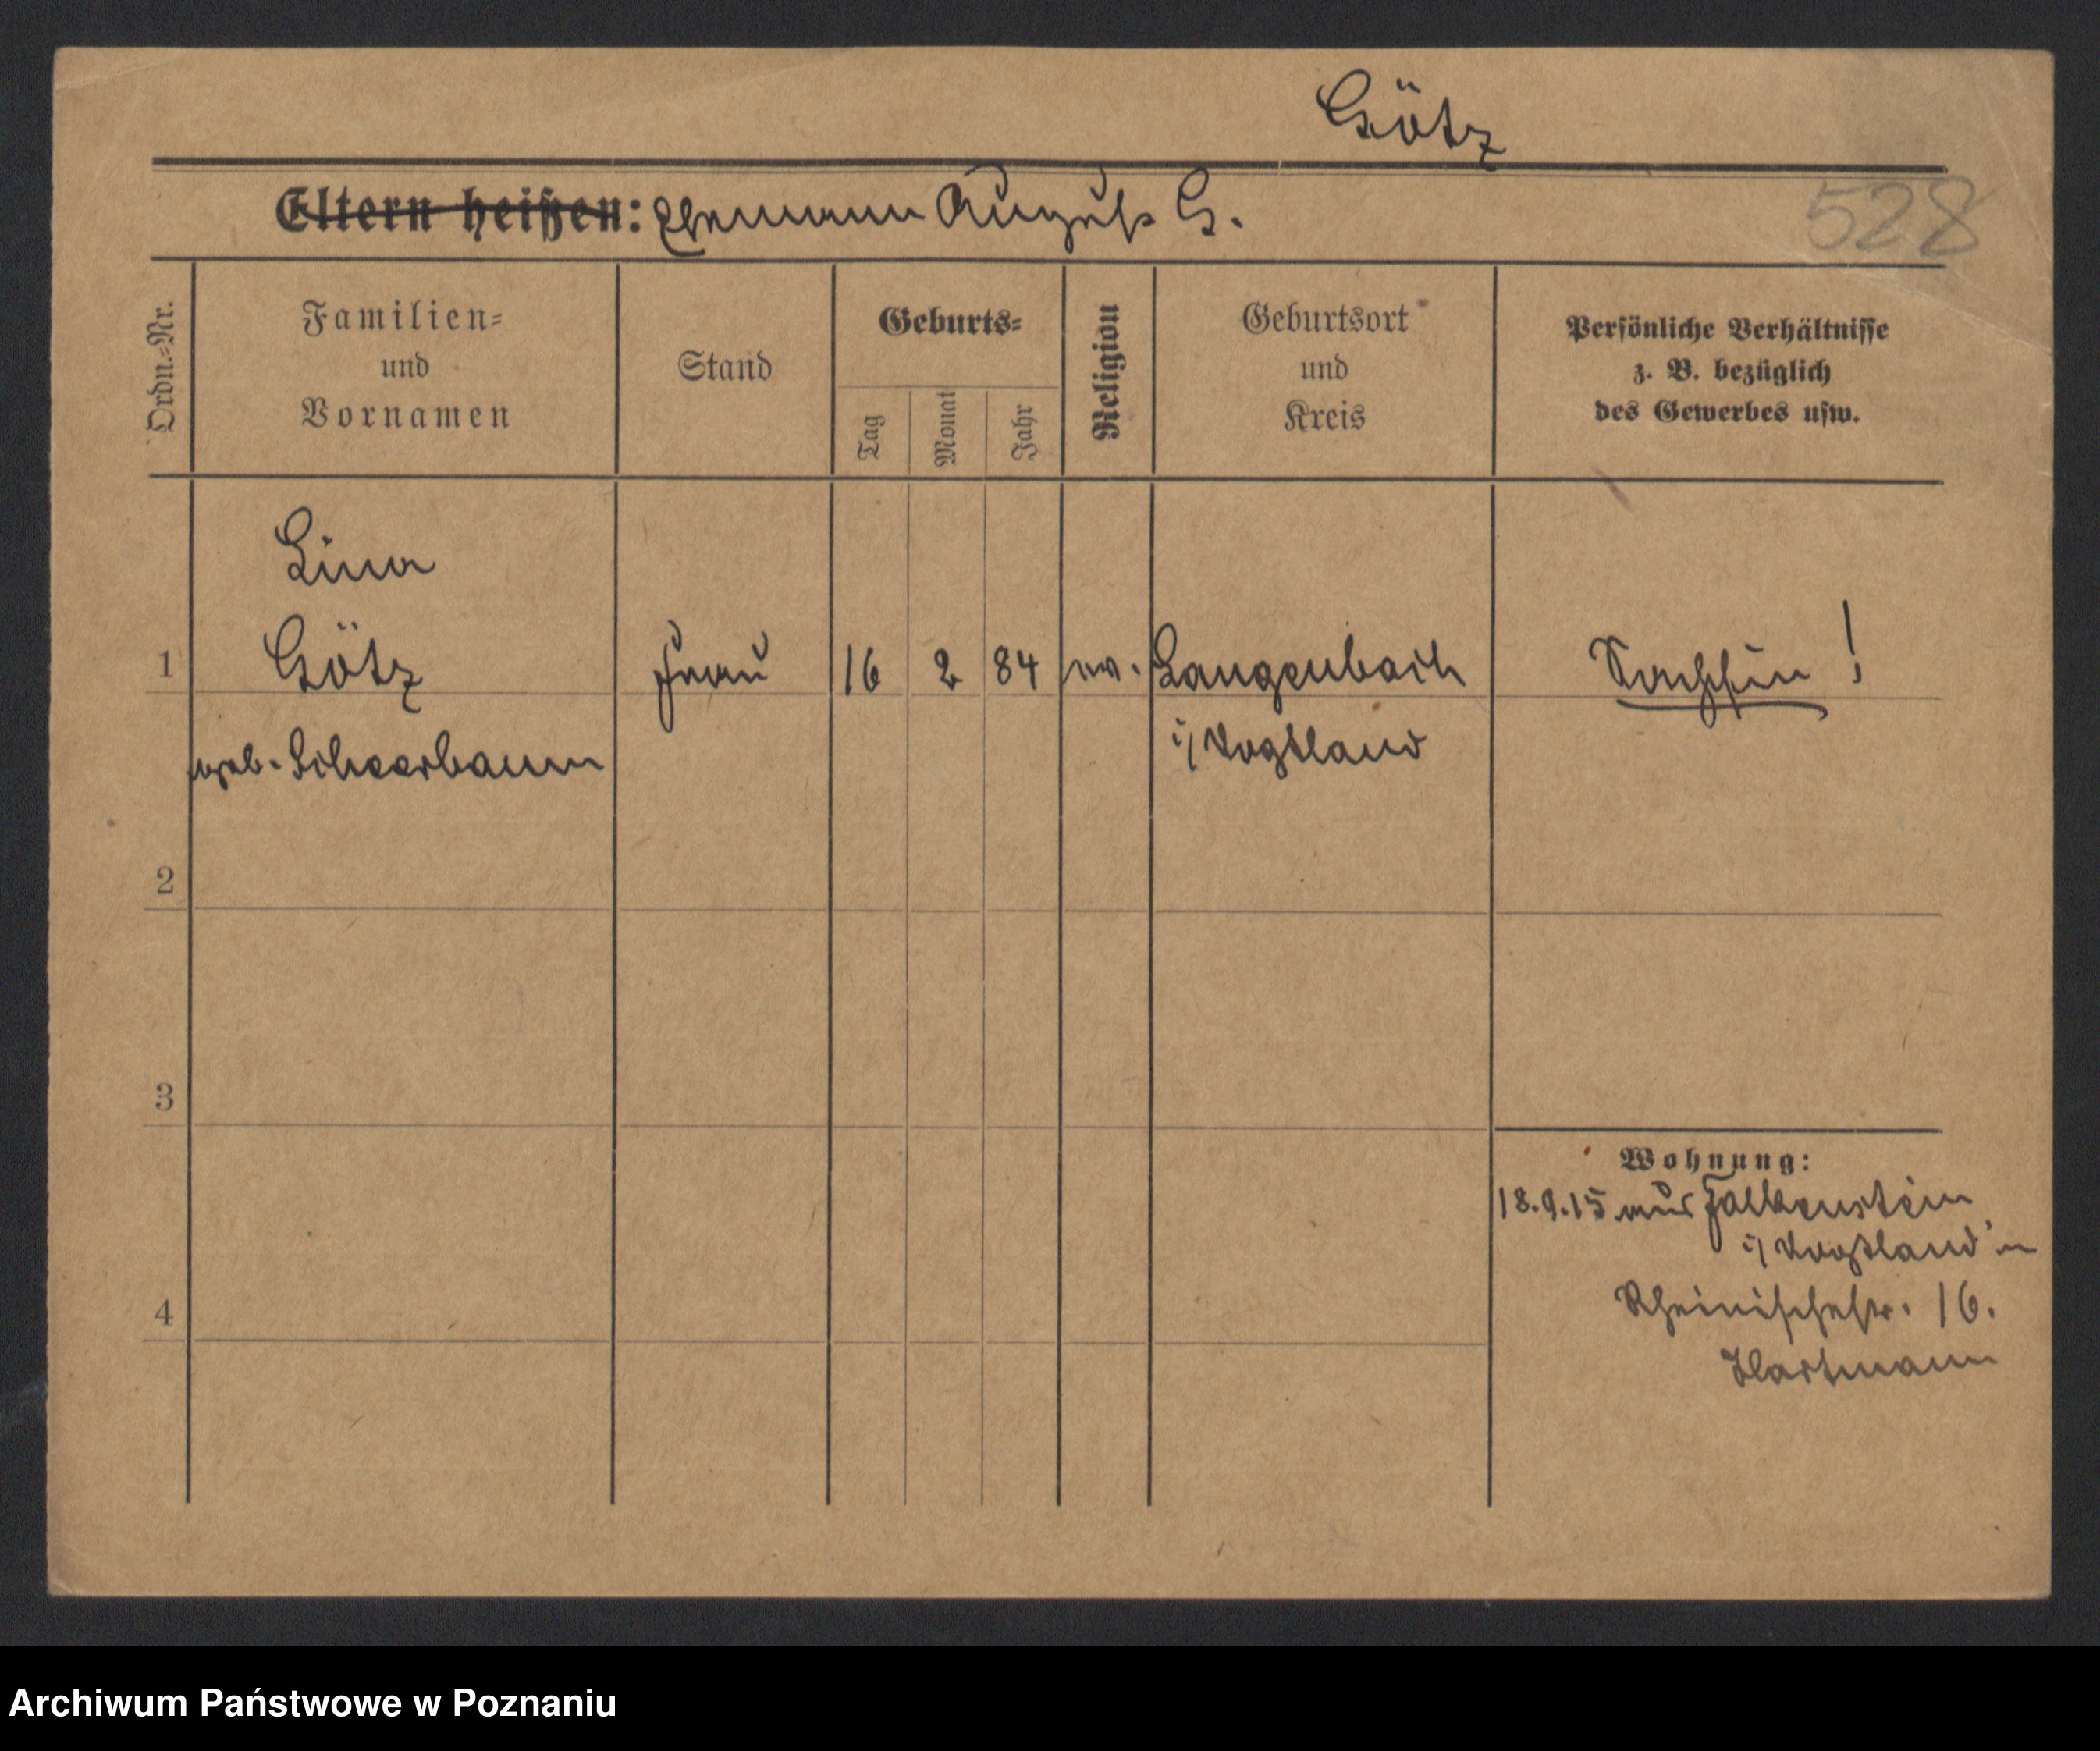 Götz
Eltern heißen: Ehemann August G.
528
Ordn.-Nr.
Familien-
und
Vornamen
Stand
Geburts-
Tag
Monat
Jahr
Religion
Geburtsort
und
Kreis
Persönliche Verhältnisse
z. B. bezüglich
des Gewerbes usw.
Lina
1 Götz Frau 16 2 84 ev. Langenbach Sächsin!
geb. Scheerbaum i/ Vogtland
2
3
Wohnung:
18.9.15 aus Falkenstein
i/ Vogtland in
4 Rheinischestr. 16.
Hartmann
Archiwum Państwowe w Poznaniu